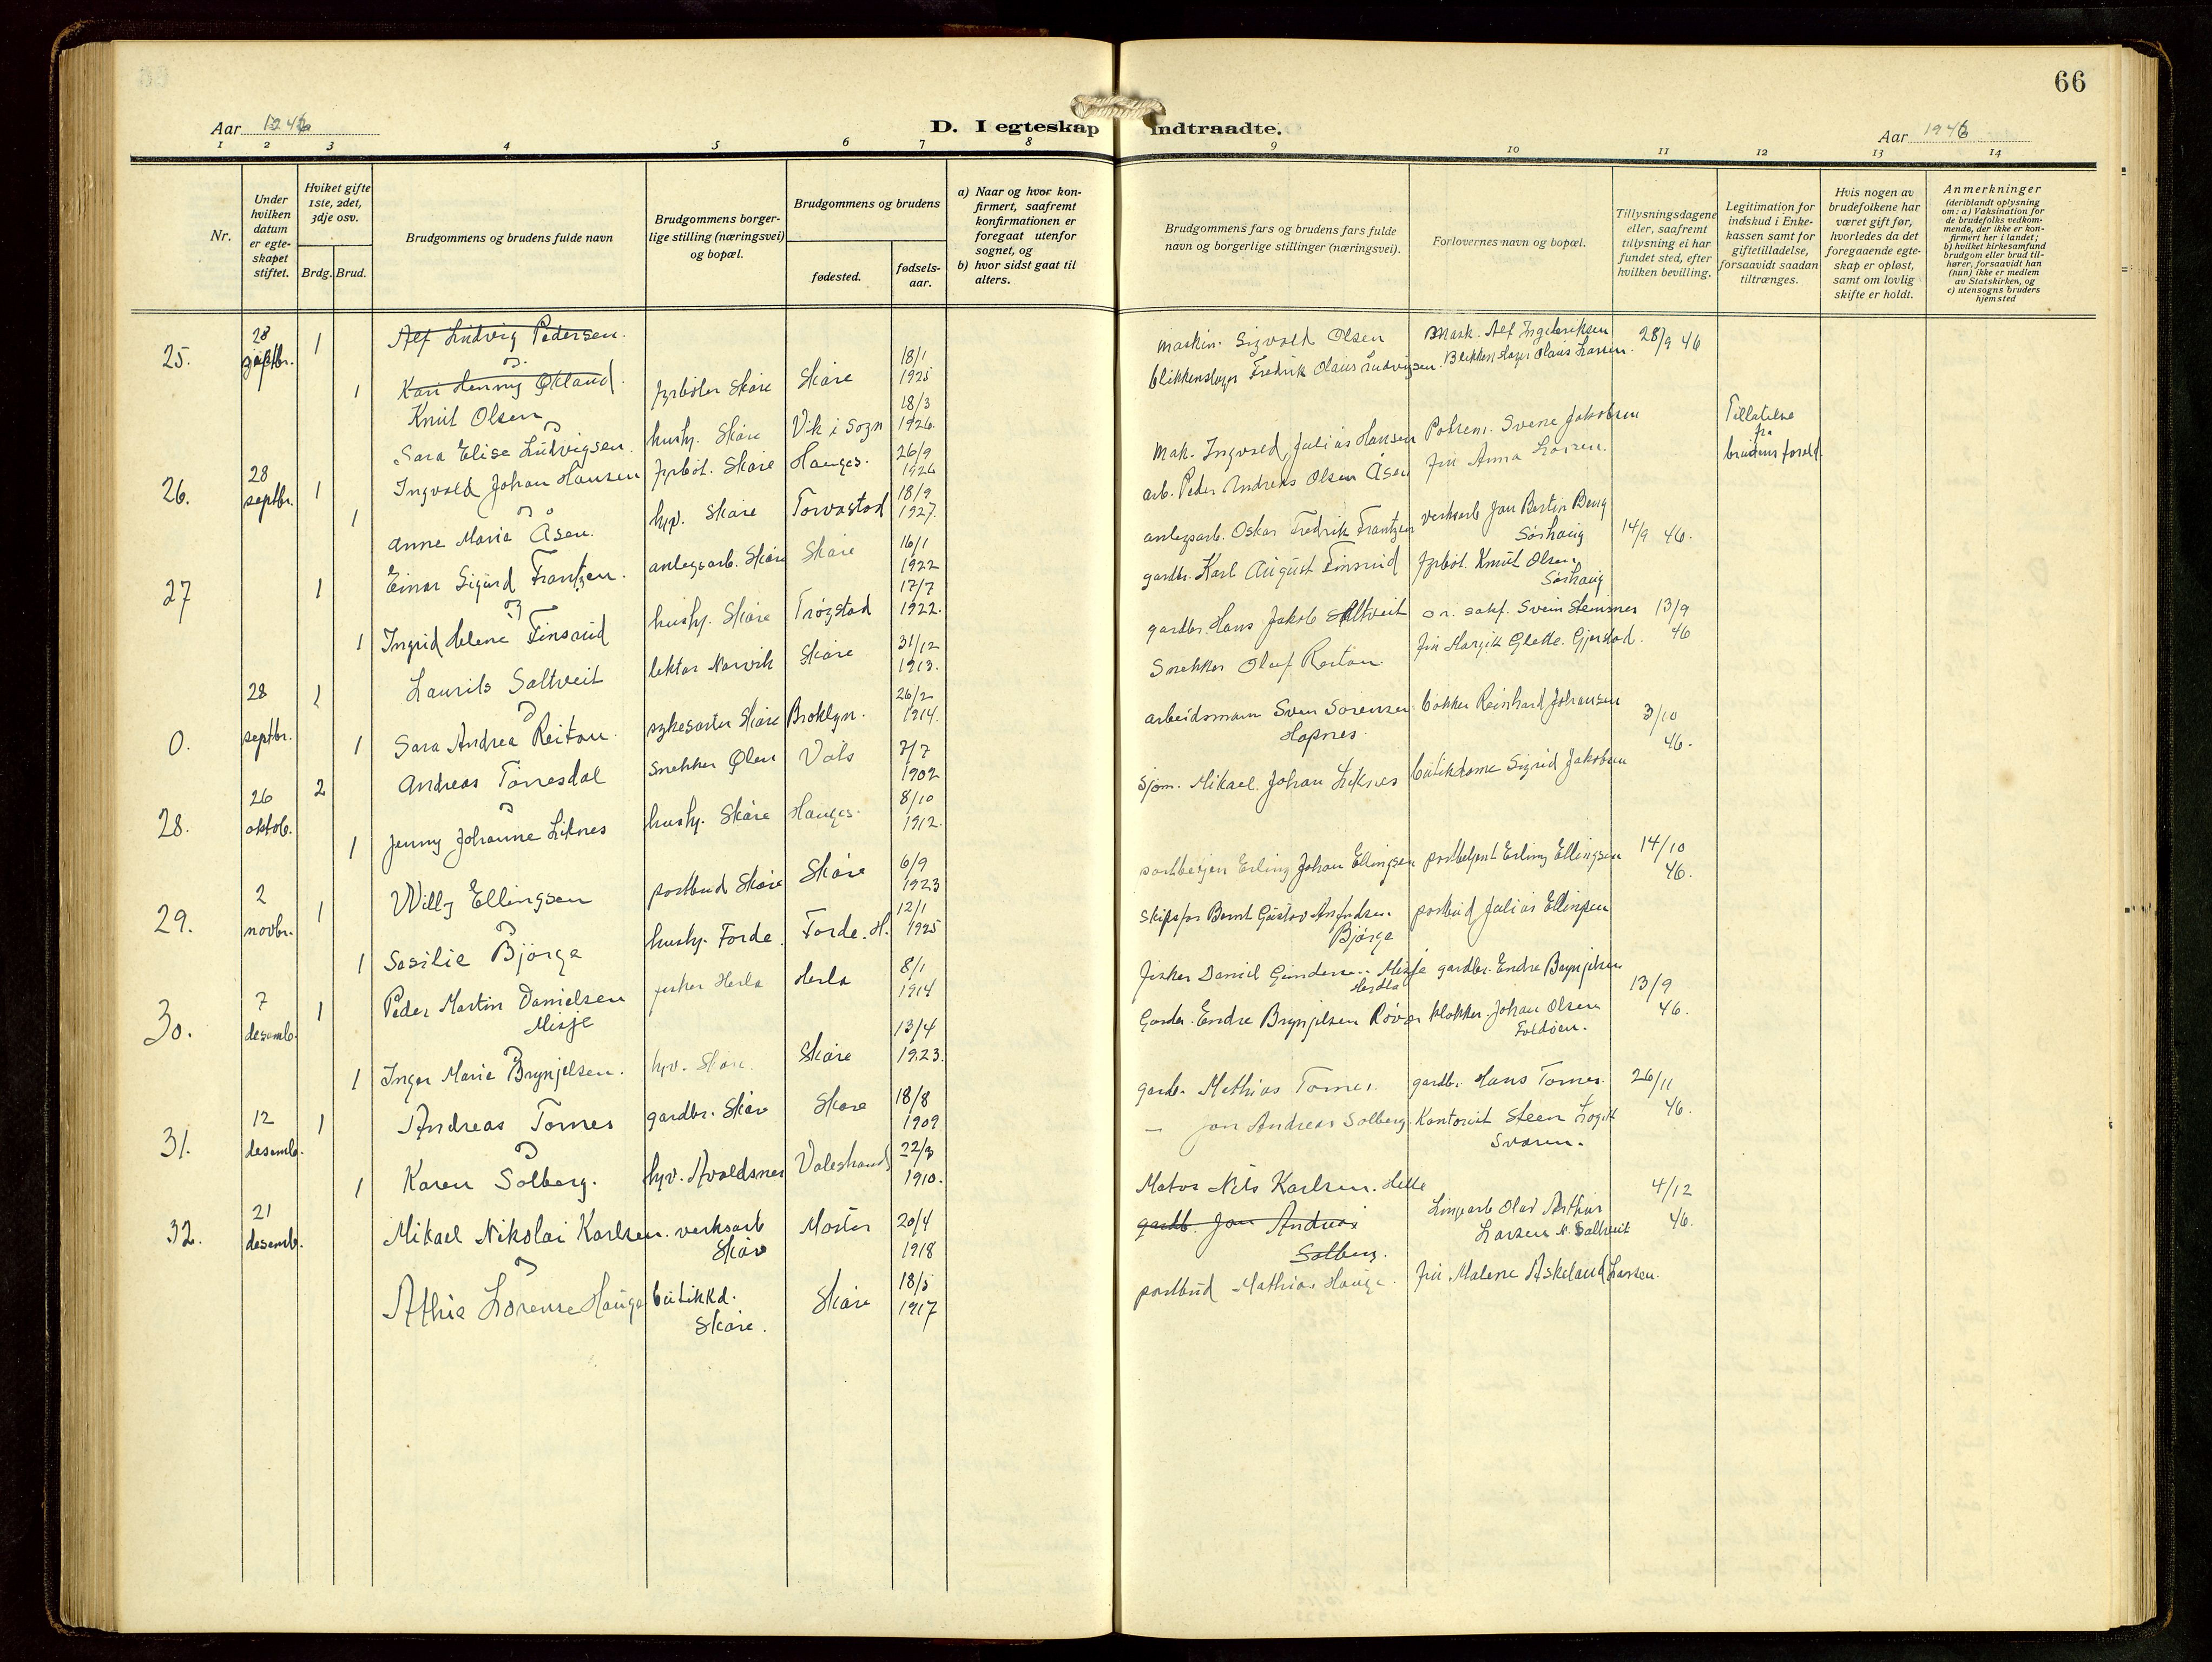 66
Aar 1946
D. I egteskap
indtraadte.
Aar 1946
1 2 3 4 5 6 7 8 9 10 11 12 13 14
Nr.
Under
hvilken
datum
er egte-
skapet
stiftet.
Hviket gifte
1ste, 2det,
3dje osv.
Brdg. Brud.
Brudgommens og brudens fulde navn
Brudgommens borger-
lige stilling (næringsvei)
og bopæl.
Brudgommens og brudens
fødested.
fødsels-
aar.
a) Naar og hvor kon-
firmert, saafremt
konfirmationen er
foregaat utenfor
sognet, og
b) hvor sidst gaat til
alters.
Brudgommens fars og brudens fars fulde
navn og borgerlige stillinger (næringsvei).
Forlovernes navn og bopæl.
Tillysningsdagene
eller, saafremt
tillysning ei har
fundet sted, efter
hvilken bevilling.
Legitimation for
indskud i Enke-
kassen samt for
giftetilladelse,
forsaavidt saadan
tiltrænges.
Hvis nogen av
brudefolkene har
været gift før,
hvorledes da det
foregaaende egte-
skap er opløst,
samt om lovlig
skifte er holdt.
Anmerkninger
(deriblandt oplysning
om: a) Vaksination for
de brudefolks vedkom-
mende, der ikke er kon-
firmert her i landet;
b) hvilket kirkesamfund
brudgom eller brud til-
hører, forsaavidt han
(hun) ikke er medlem
av Statskirken, og
c) utensogns bruders
hjemsted
25. 28 septbr. 1 Alf Ludvig Pedersen.
og
1 Kari Henny Økland.
Knut Olsen fyrbøter Skåre Skåre 18/1 1925 maskin. Sigvald Olsen Mask. Alf Ingebriksen 28/9 46
og
Sara Elise Ludvigsen. hush. Skåre Vik i Sogn 18/3 1926. blikkenslager Fredrik Olaus Ludvigsen. Blikkenslager Olaus Larsen.
26. 28 septbr. 1 Ingvald Johan Hansen fyrbøt. Skåre Hauges. 26/9 1926 Mak. Ingvald Julius Hansen Svene Jakobsen Tillatelse
fra
brudens foreld.
og
1 Anne Marie Åsen. hpv. Skåre Torvastad 18/9 1927. arb. Peder Andreas Olsen Åsen fru Anna Larsen.
27 1 Einar Sigurd Frantzen. anlegsarb. Skåre Skåre 16/1 1922 anlegsarb. Oskar Fredrik Frantzen verksarb Jan Bertin Berg
Sørhaug 14/9 46.
og
1 Ingrid Helene Finsrud hush. Skåre Trøgstad 17/7 1922. gardbr. Karl August Finsrud fyrbøt. Knut Olsen
Sørhaug
0. 28 septbr. 1 Laurits Saltveit lektor Narvik Skåre 31/12 1913. gardbr. Hans Jakob Saltveit o.r. sakf. Svein Steinsnes 13/9 46
og
1 Sara Andrea Reitan. sykesøster Skåre Broklyn. 26/2 1914. Snekker Olaf Reitan. fru Margit Glette. Gjerstad.
28. 26 oktob. 2 Andreas Tørresdal Snekker Ølen Vats 7/7 1902 arbeidsmann Sven Sørensen
Hapnes. bakker Reinhard Johansen 3/10 46.
og
1 Jenny Johanne Liknes hush. Skåre Hauges. 8/10 1912. Sjøm. Mikael Johan Liknes butikdame Sigrid Jakobsen
29. 2 novbr. 1 Willy Ellingsen postbud Skåre Skåre 6/9 1923 Erling Johan Ellingsen postbetjent Erling Ellingsen 14/10 46.
og
1 Sesilie Bjørge hush. Førde. Førde. H. 12/1 1925 Skipsfør Bernt Gustav Amundsen
Bjørge postbud Julius Ellingsen
30. 7 desemb. 1 Peder Martin Danielsen
Misje fisker Herla Herla 8/1 1914 fisker Daniel Gundersen Misje
Herdla gardbr. Endre Brynjelsen 13/9 46.
og
1 Inger Marie Brynjelsen. hpv. Skåre. Skåre 13/4 1923. Gardbr. Endre Brynjelsen Røvær klokker Johan Olsen
Feøden.
31. 12 desemb. 1 Andreas Tornes gardbr. Skåre Skåre 18/8 1909 gardb. Mathias Tornes. gardbr. Hans Tornes. 26/11 46.
og
1 Karen Solberg. hpv. Avaldsnes Valestrand 22/3 1910. — Jan Andreas Solberg. Kontorist Steen
Svaren.
32. 21 desemb. Mikael Nikolai Karlsen. verksarb
Skåre Moster 20/4 1918 Nils Karlsen. Lingearb Olav Arthur
Larsen N. Saltveit 4/12 46.
gardb. Jan Andreas
Solberg.
og
Athie Lorense Hauge butikkd.
Skåre. Skåre 18/5 1917 postbud Mathias Hauge. fru Malene Askeland Larsen.